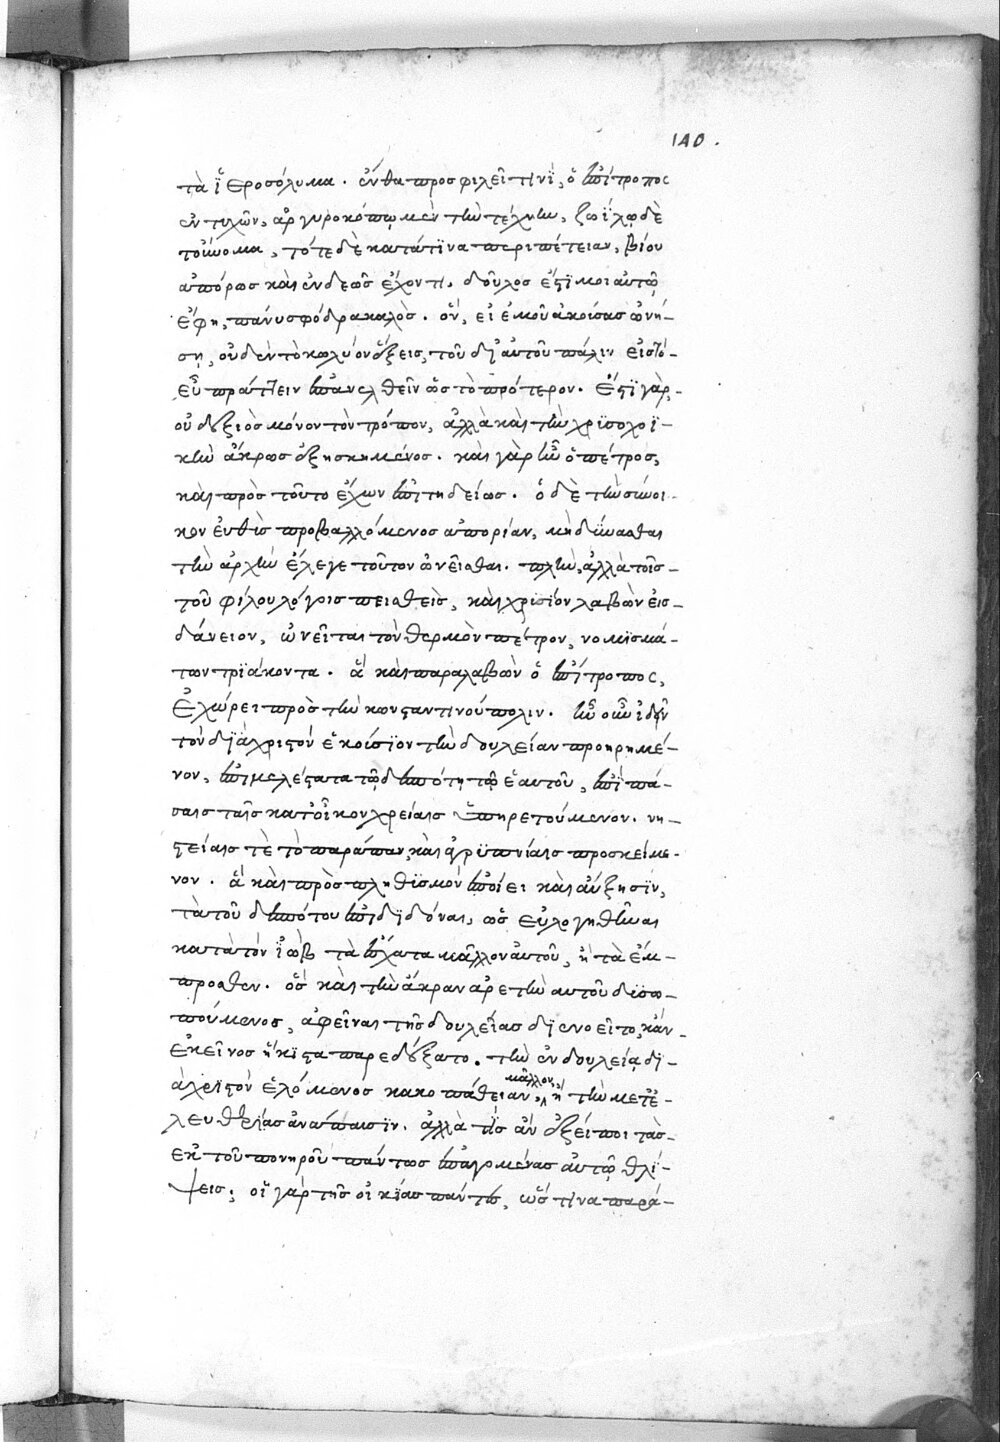 140.
τὰ ἱεροσόλυμα. ἔνθα προσφιλεῖ τινὶ, ὁ ἐπίτροπος
ἐντυχὼν, ἀργυροκόπῳ μὲν τὴν τέχνην, ζωΐλῳ δὲ
τοὔνομα, τότε δὲ κατά τινα περιπέτειαν, βίου
ἀπόρως καὶ ἐνδεῶς ἔχοντι. δοῦλος ἔστι μοι αὐτῷ
ἔφη, πάνυ σφόδρα καλὸς. ὃν, εἰ ἐμοῦ ἀκούσας ὠνή-
σῃ, οὐδὲν τὸ κωλύον ἕξεις, τοῦ δι' αὐτοῦ πάλιν εἰς τὸ
εὖ πράττειν ἐπανελθεῖν ὡς τὸ πρότερον. ἔστι γὰρ,
οὐ δεξιὸς μόνον τὸν τρόπον, ἀλλὰ καὶ τὴν χρυσοχοϊ-
κὴν ἄκρως ἐξησκημένος. καὶ γὰρ ἦν ὁ πέτρος,
καὶ πρὸς τοῦτο ἔχων ἐπιτηδείως. ὁ δὲ τὴν σύνοι-
κον εὐθὺς προβαλλόμενος ἀπορίαν, μὴ δύνασθαι
τὴν ἀρχὴν ἔλεγε τοῦτον ὠνεῖσθαι. πλὴν, ἀλλὰ τοῖς
τοῦ φίλου λόγοις πεισθεὶς, καὶ χρυσίον λαβὼν εἰς
δάνειον, ὠνεῖται τὸν θερμὸν πέτρον, νομισμά-
των τριάκοντα. ἃ καὶ παραλαβὼν ὁ ἐπίτροπος,
ἐχώρει πρὸς τὴν κωνσταντινούπολιν. ἦν οὖν ἰδεῖν
τὸν διὰ χριστὸν ἑκούσιον τὴν δουλείαν προῃρημέ-
νον, ἐπιμελέστατα τῷ δεσπότῃ τῷ ἑαυτοῦ, ἐπὶ πά-
σαις ταῖς κατ' οἶκον χρείαις ὑπηρετούμενον. νη-
στείαις τὲ τὸ παράπαν, καὶ ἀγρυπνίαις προσκείμε-
νον. ἃ καὶ πρὸς πληθυσμὸν ἐποίει καὶ αὔξησιν,
τὰ τοῦ δεσπότου ἐπιδιδόναι, ὡς εὐλογηθῆναι
κατὰ τὸν ἰὼβ τὰ ἔσχατα μᾶλλον αὐτοῦ, ἢ τὰ ἔμ-
προσθεν. ὃς καὶ τὴν ἄκραν ἀρετὴν αὐτοῦ δυσω-
πούμενος, ἀφεῖναι τῆς δουλείας διενοεῖτο, κἂν
ἐκεῖνος ἥκιστα παρεδέξατο. τὴν ἐν δουλείᾳ δι-
ὰ χριστὸν ἑλόμενος κακοπάθειαν μᾶλλον, ἢ τὴν μετ' ἐ-
λευθερίας ἀνάπαυσιν. ἀλλὰ τίς ἂν ἐξείποι τὰς
ἐκ τοῦ πονηροῦ πάντως ἐπαγομένας αὐτῷ θλί-
ψεις; οἱ γὰρ τῆς οἰκίας παντὸς, ὥς τινα παρά-